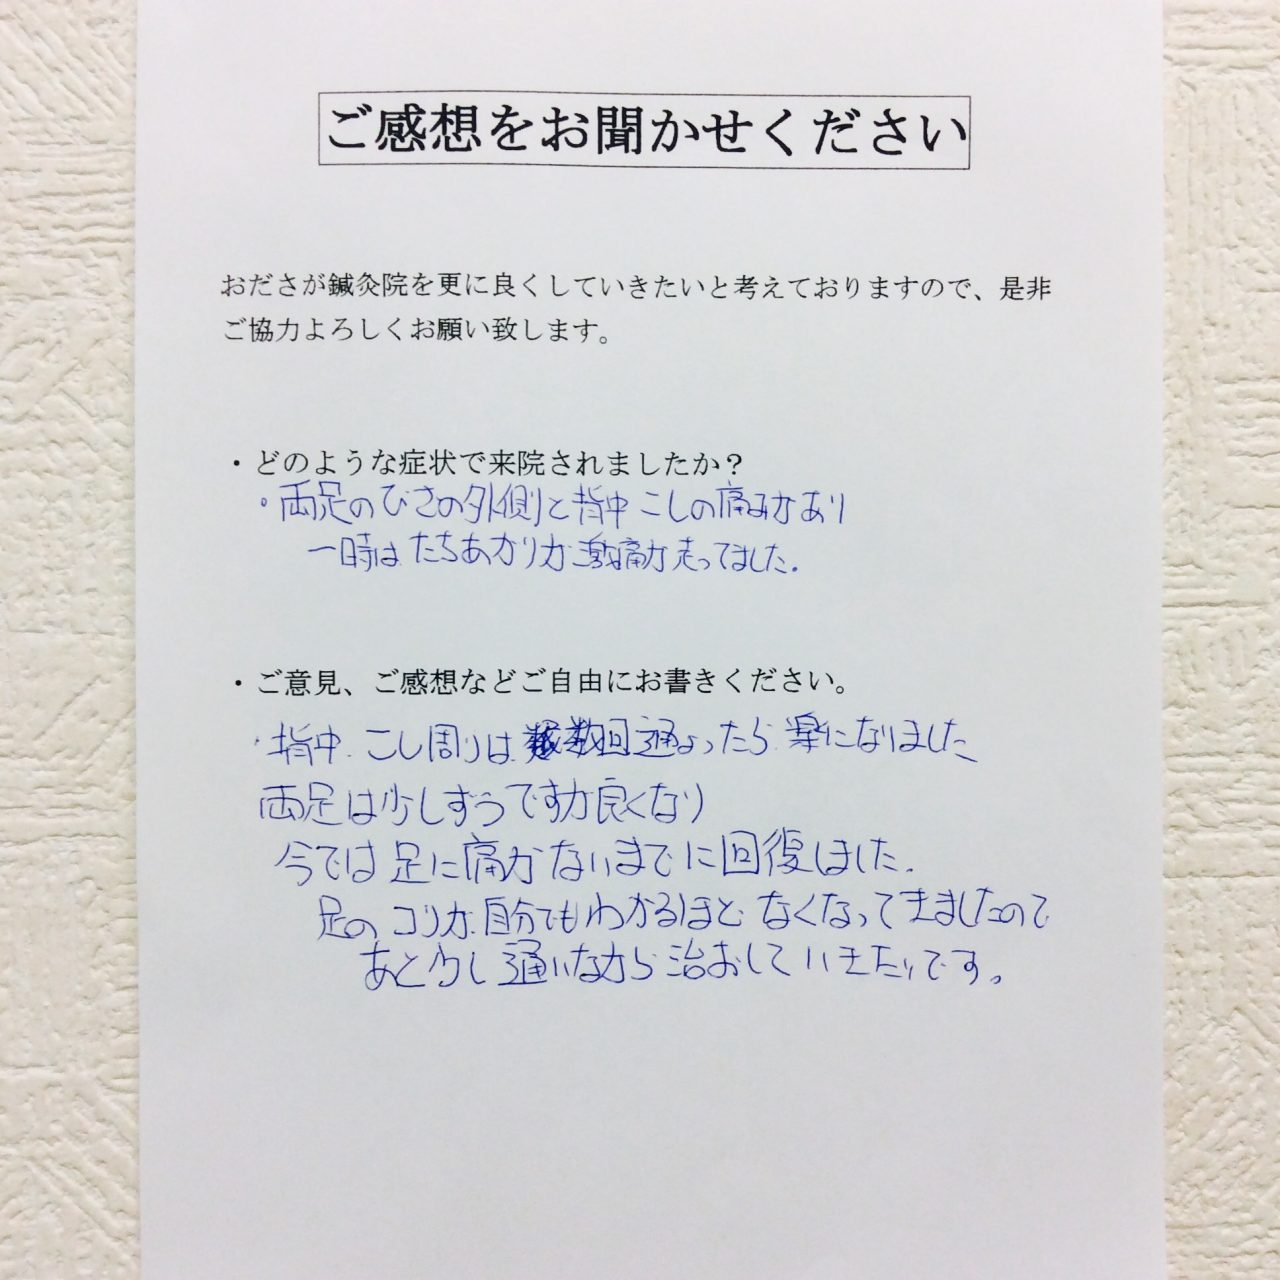 ご感想をお聞かせください
おださが鍼灸院を更に良くしていきたいと考えておりますので、是非
ご協力よろしくお願い致します。
・どのような症状で来院されましたか？
・両足のひざの外側と背中 こしの痛みがあり
一時は たちあがりが 激痛が走ってました.
・ご意見、ご感想などご自由にお書きください。
・背中. こし周りは 数回通ょったら 楽になりました
両足は少しずつですが良くなり
今では 足に痛がないまでに回復しました.
足の コリが 自分でもわかるほど なくなってきましたので
あと少し通いながら治おしていきたいです。